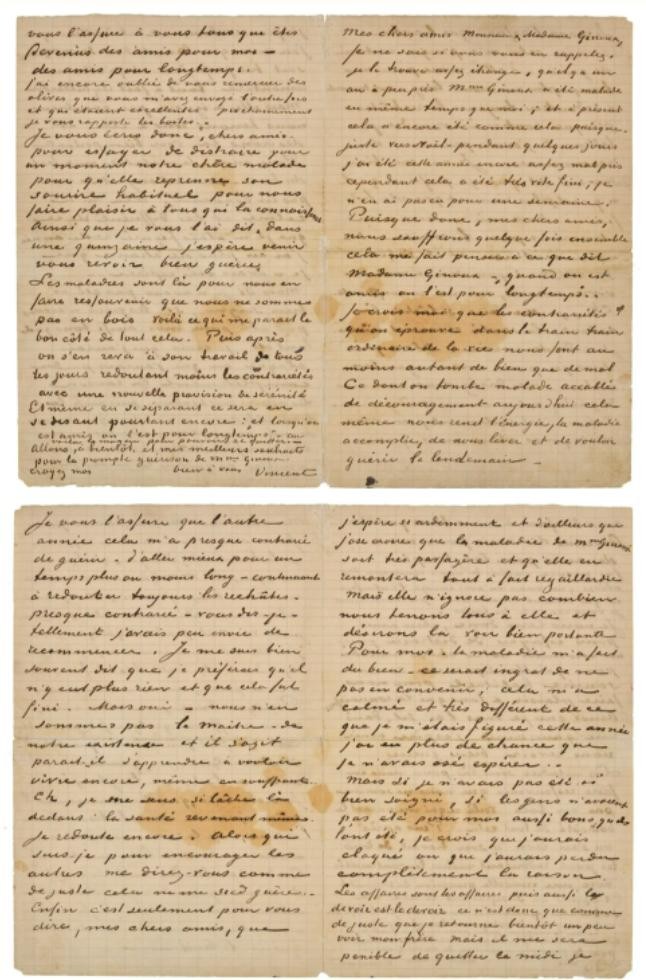 Mes chers amis Monsieur & Madame Ginoux,
Je ne sais si vous vous en rappelez,
je le trouve assez étrange, qu'il y a un
an à peu près Mme Ginoux a été malade
en même temps que moi; et à présent
cela a encore été comme cela puisque
juste vers Noël – pendant quelques jours
j'ai été cette année encore assez mal pris
cependant cela a été très vite fini, je
n'en ai pas eu pour une semaine.
Puisque donc, mes chers amis,
nous souffrons quelquefois ensemble
cela me fait penser à ce que dit
Madame Ginoux – "quand on est
amis on l'est pour longtemps"..
Je crois moi que les contrariétés
qu'on éprouve dans le train train
ordinaire de la vie nous font au
moins autant de bien que de mal
Ce dont on tombe malade accablé
de découragement aujourd'hui cela
même nous rend l'énergie, la maladie
accomplie, de nous lever et de vouloir
guérir le lendemain –
Je vous l'assure que l'autre
année cela m'a presque contrarié
de guérir – d'aller mieux pour un
temps plus ou moins long – continuant
à redouter toujours les rechûtes –
presque contrarié – vous dis-je –
tellement j'avais peu envie de
recommencer. Je me suis bien
souvent dit que je préférais qu'il
n'y eut plus rien et que cela fut
fini. Mais oui – nous n'en
sommes pas le maitre – de
notre existence et il s'agit
parait-il d'apprendre à vouloir
vivre encore, même en souffrant.
Eh, je me sens si lâche là
dedans; la santé revenant même
je redoute encore. Alors qui
suis-je pour encourager les
autres me direz-vous comme
de juste cela ne me sied guère..
Enfin c'est seulement pour vous
dire, mes chers amis, que
j'espère si ardemment et d'ailleurs que
j'ose croire que la maladie de Mme Ginoux
soit très passagère et qu'elle en
remontera tout à fait regaillardie
Mais elle n'ignore pas combien
nous tenons tous à elle et
désirons la voir bien portante
Pour moi – la maladie m'a fait
du bien – ce serait ingrat de ne
pas en convenir; cela m'a
calmé et très différent de ce
que je m'étais figuré cette année
j'ai eu plus de chance que
je n'avais osé espérer..
Mais si je n'avais pas été si
bien soigné, si les gens n'avaient
pas été pour moi aussi bons qu'ils
l'ont été, je crois que j'aurais
claqué ou que j'aurais perdu
complètement la raison.
Les affaires sont les affaires puis aussi le
devoir est le devoir ce n'est donc que comme
de juste que je retourne bientôt un peu
voir mon frère mais il me sera
penible de quitter le midi je
vous l'assure à vous tous que êtes
devenus des amis pour moi –
des amis pour longtemps.
j'ai encore oublié de vous remercier des
olives que vous m'avez envoyé l'autre fois
et qui étaient excellentes – prochainement
je vous rapporte les boites..
Je vous écris donc, chers amis
pour essayer de distraire pour
un moment notre chère malade
pour qu'elle reprenne son
sourire habituel pour nous
faire plaisir à tous qui la connaissent
Ainsi que je vous l'ai dit, dans
une quinzaine j'espère venir
vous revoir bien guéries
Les maladies sont là pour nous en
faire ressouvenir que nous ne sommes
pas en bois voilà ce qui me parait le
bon côté de tout cela. Puis après
on s'en reva à son travail de tous
les jours redoutant moins les contrariétés
avec une nouvelle provision de sérénité
Et même en se séparant ce sera en
se disant pourtant encore: et lorsqu'on
est amis on l'est pour longtemps – car
voilà le moyen pour pouvoir se quitter –
Allons, à bientôt, et mes meilleurs souhaits
pour la prompte guérison de Mme Ginoux
croyez moi bien à vous Vincent